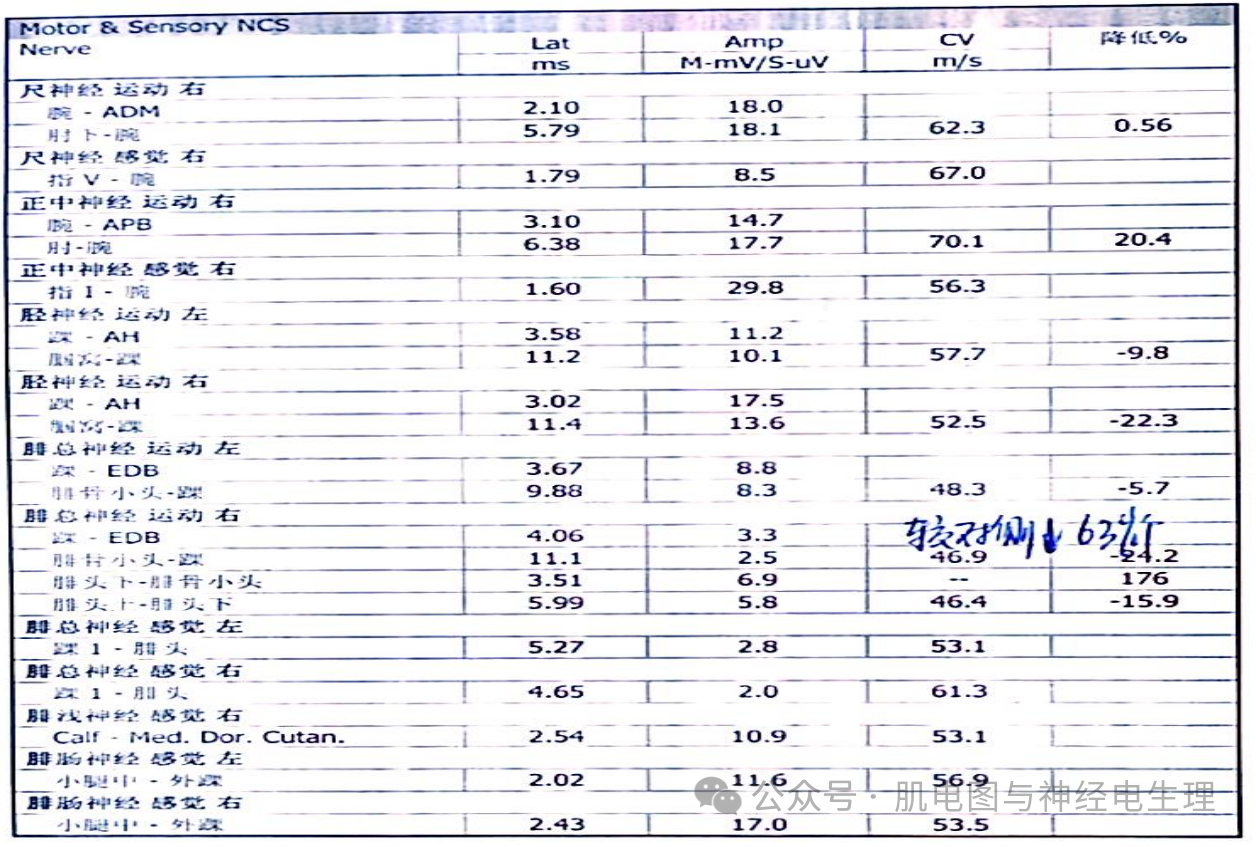 Motor & Sensory NCS
Nerve Lat Amp CV 降低%
ms M-mV/S-uV m/s
尺神经 运动 右
腕 - ADM 2.10 18.0
肘下-腕 5.79 18.1 62.3 0.56
尺神经 感觉 右
指 V - 腕 1.79 8.5 67.0
正中神经 运动 右
腕 - APB 3.10 14.7
肘-腕 6.38 17.7 70.1 20.4
正中神经 感觉 右
指 I - 腕 1.60 29.8 56.3
胫神经 运动 左
踝 - AH 3.58 11.2
腘窝-踝 11.2 10.1 57.7 -9.8
胫神经 运动 右
踝 - AH 3.02 17.5
腘窝-踝 11.4 13.6 52.5 -22.3
腓总神经 运动 左
踝 - EDB 3.67 8.8
腓骨小头-踝 9.88 8.3 48.3 -5.7
腓总神经 运动 右
踝 - EDB 4.06 3.3 较对侧↓63%
腓骨小头-踝 11.1 2.5 46.9 -24.2
腓头下-腓骨小头 3.51 6.9 -- 176
腓头上-腓头下 5.99 5.8 46.4 -15.9
腓总神经 感觉 左
踝 1 - 腓头 5.27 2.8 53.1
腓总神经 感觉 右
踝 1 - 腓头 4.65 2.0 61.3
腓浅神经 感觉 右
Calf - Med. Dor. Cutan. 2.54 10.9 53.1
腓肠神经 感觉 左
小腿中 - 外踝 2.02 11.6 56.9
腓肠神经 感觉 右
小腿中 - 外踝 2.43 17.0 53.5
公众号 · 肌电图与神经电生理